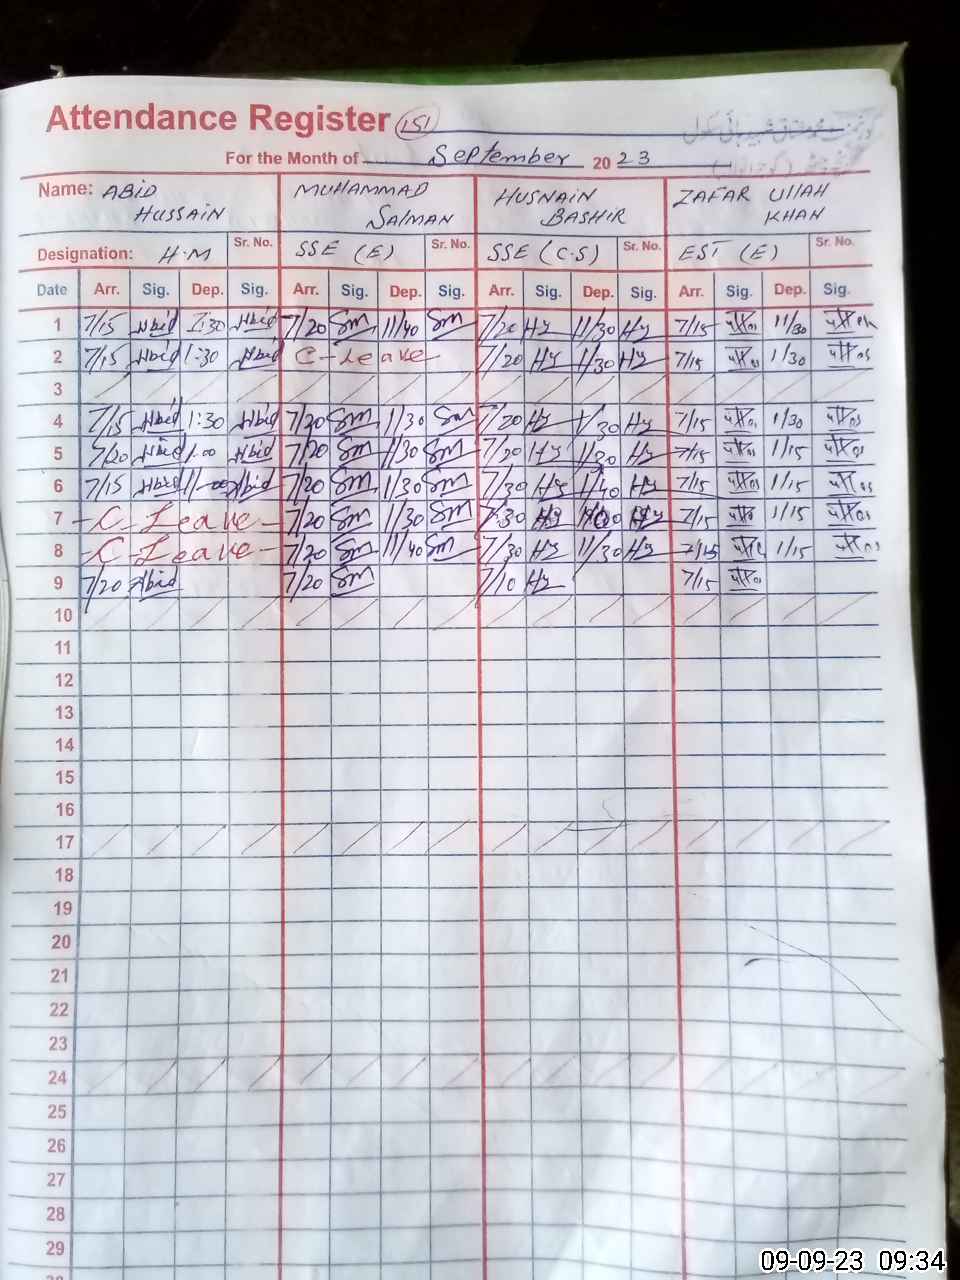 Attendance Register 151
For the Month of September 20 23
Name: ABID HUSSAIN MUHAMMAD SALMAN HUSNAIN BASHIR ZAFAR Ullah KHAN
Designation: H.M Sr. No. SSE (E) Sr. No. SSE (C.S) Sr. No. EST (E) Sr. No.
Date Arr. Sig. Dep. Sig. Arr. Sig. Dep. Sig. Arr. Sig. Dep. Sig. Arr. Sig. Dep. Sig.
1 7/15 Abid 1:30 Abid 7/20 Sm 11/40 Sm 7/20 Hy 11/30 Hy 7/15 11/30
2 7/15 Abid 1:30 Abid C-Leave 7/20 Hy 11/30 Hy 7/15 1/30
3
4 7/15 Abid 1:30 Abid 7/20 Sm 11/30 Sm 7/20 Hy 1/30 Hy 7/15 1/30
5 7/20 Abid 1:00 Abid 7/20 Sm 11/30 Sm 7/20 Hy 11/30 Hy 7/15 1/15
6 7/15 Abid Abid 7/20 Sm 11/30 Sm 7/30 Hy 1/40 Hy 7/15 1/15
7 C-Leave 7/20 Sm 11/30 Sm 7/30 Hy Hy 7/15 1/15
8 C-Leave 7/20 Sm 11/40 Sm 7/30 Hy 11/30 Hy 7/15 1/15
9 7/20 Abid 7/20 Sm 7/10 Hy 7/15
10
11
12
13
14
15
16
17
18
19
20
21
22
23
24
25
26
27
28
29
09-09-23 09:34